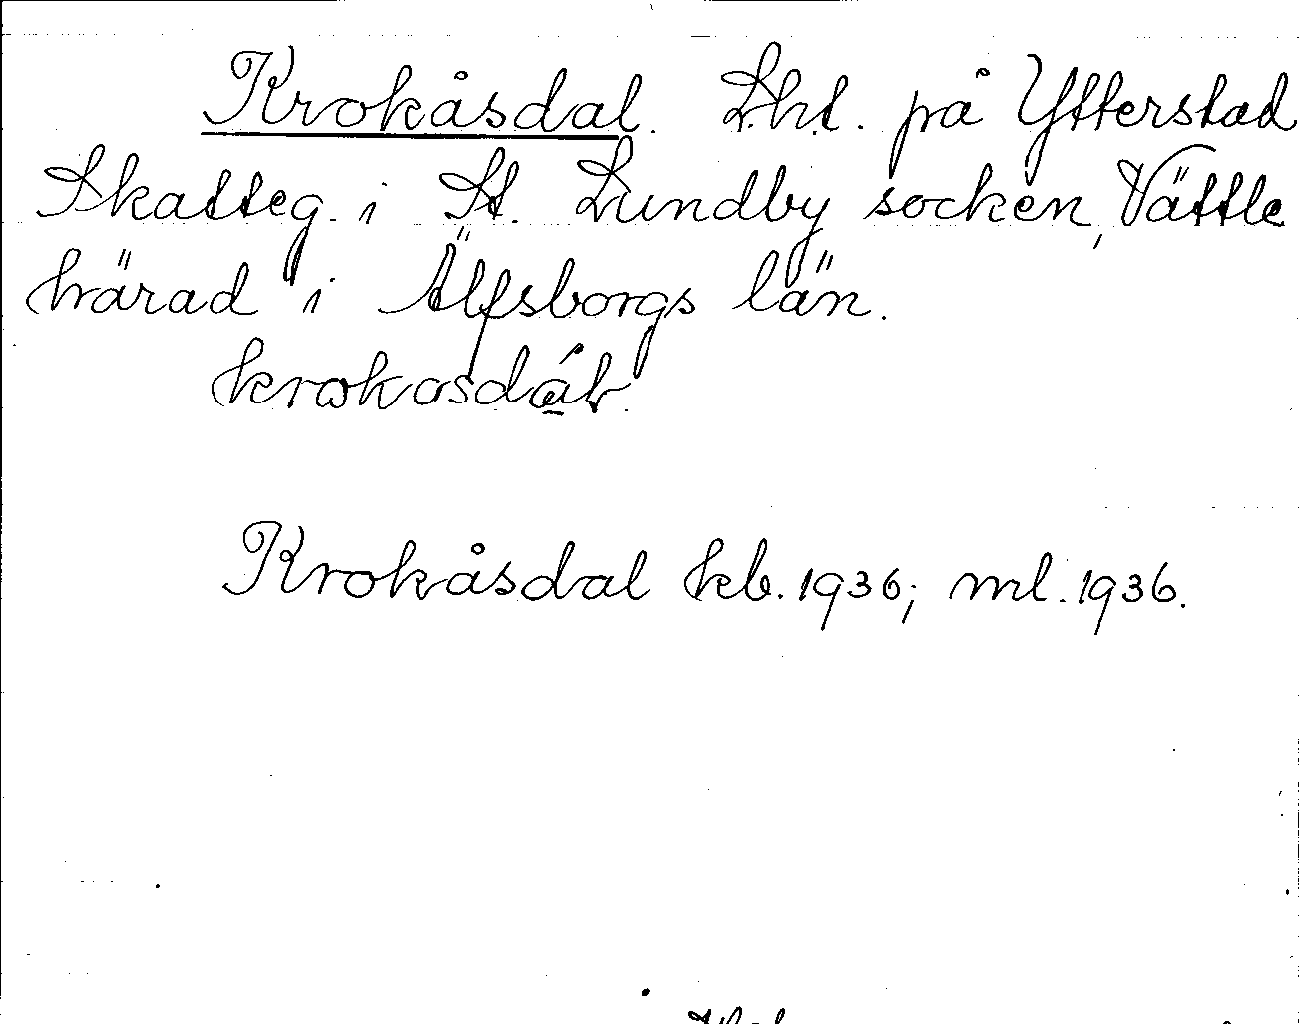 Krokåsdal. Lht. på Ytterstad
Skatteg. i St. Lundby socken, Vättle
härad i Älfsborgs län.
Krokåsdal kb. 1936; ml. 1936.